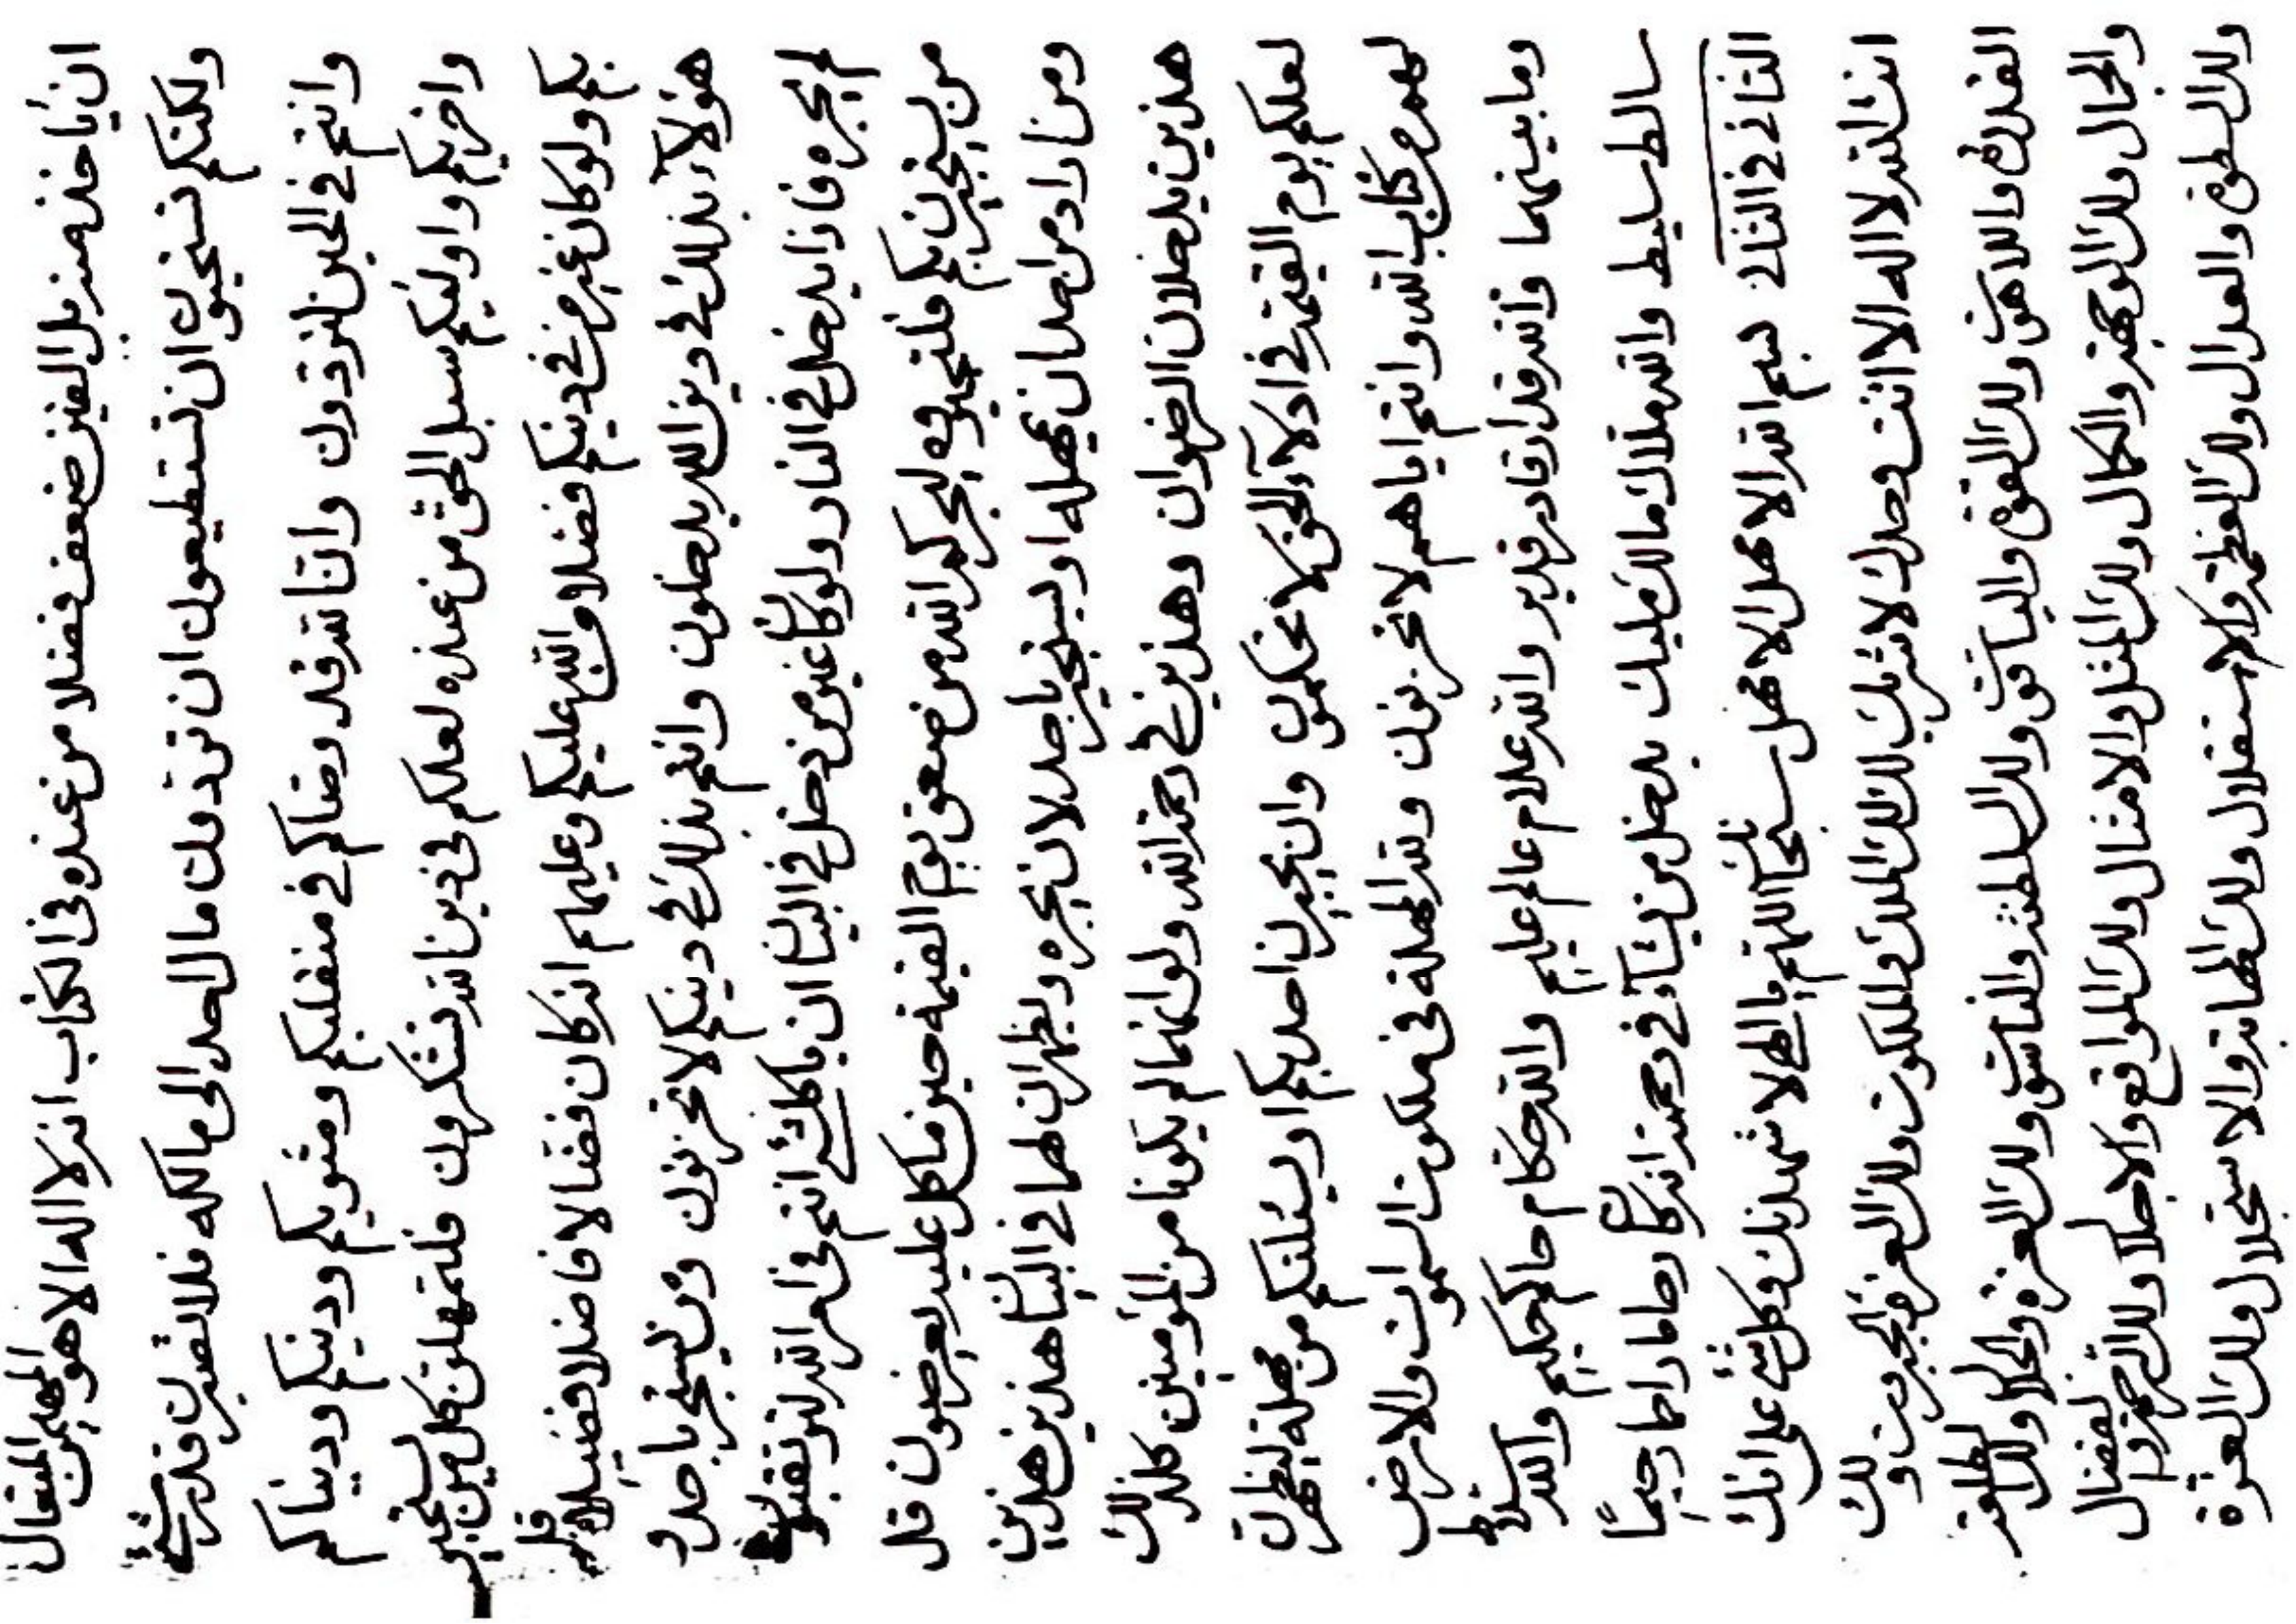 ان يأخذ منه بدل الفين ضعف فضلا من عنده في الكتاب انه لا اله الا هو المهيمن المتعال
ولكنكم تستحيون ان تستطيعون ان تردون مال احد الى مالكه فلا تصبرن قدر شيء
وانتم في الحين لتردون وان الله قد رضاكم في منقلبكم ومثويكم ودينكم ودنياكم
واخريكم واوليكم سبل الحق من عنده لعلكم في دين الله تشكرون فلتمهلن كل من يستجير
بكم ولو كان غير من في دينكم فضلا من الله عليكم وعليهم انه كان فضالا فاضلا فضيلا قل
هؤلاء بذلك في دين الله يدخلون وانتم بذلك في دينكم لا تحزنون ومن يستجير باحد و
لم يجره فاذا يدخل في النار ولو كان غير من دخل في البيان ان يا كلشيء انتم في امر الله لتوقنون
من يستجيرن بكم فلتجيرنه ليجركم الله من صعق يوم القيمة حين ما كل عليه يعرضون قل
ومن اراد من احد ان يمهله او يستجير باحد لان يجره ويظهرن لهما في البيان هذين هذين
هذين يدخلان الرضوان وهذين في رحمة الله ولو انهما لم يكونا من المؤمنين كذلك
لعلكم يوم القيمة في ادلاء الحق لا تحكمون وان يجيرن احد بكم او يسئلنكم من مهلة لتظهرن
لهم من كتاب الله وانتم اياهم لا تحزنون ولله المهلة في ملكوت السموات والارض
وما بينهما والله قدار قادر قدير والله علام عالم عليم والله حكام حاكم حكيم والله سلاط
سالط سليط والله ملاك مالك مليك يدخل من يشاء في رحمته انه كان رحاما راحما رحيما
الثاني في الثاني بسم الله الامهل الامهل سبحانك اللهم يا الهي لاشهدنك وكل شيء على انك
انت الله لا اله الا انت وحدك لا شريك لك لك الملك والملكوت ولك العز والجبروت ولك
القدرة واللاهوت ولك القوة والياقوت ولك السلطنة والناسوت ولك العزة والجلال ولك الطلعة
والجمال ولك الوجهة والكمال ولك المثل والامثال ولك المواقع والاجلال ولك الرحمة والفضال
ولك السطوة والعدال ولك العظمة والاستقلال ولك المهابة والاستجلال ولك العزة